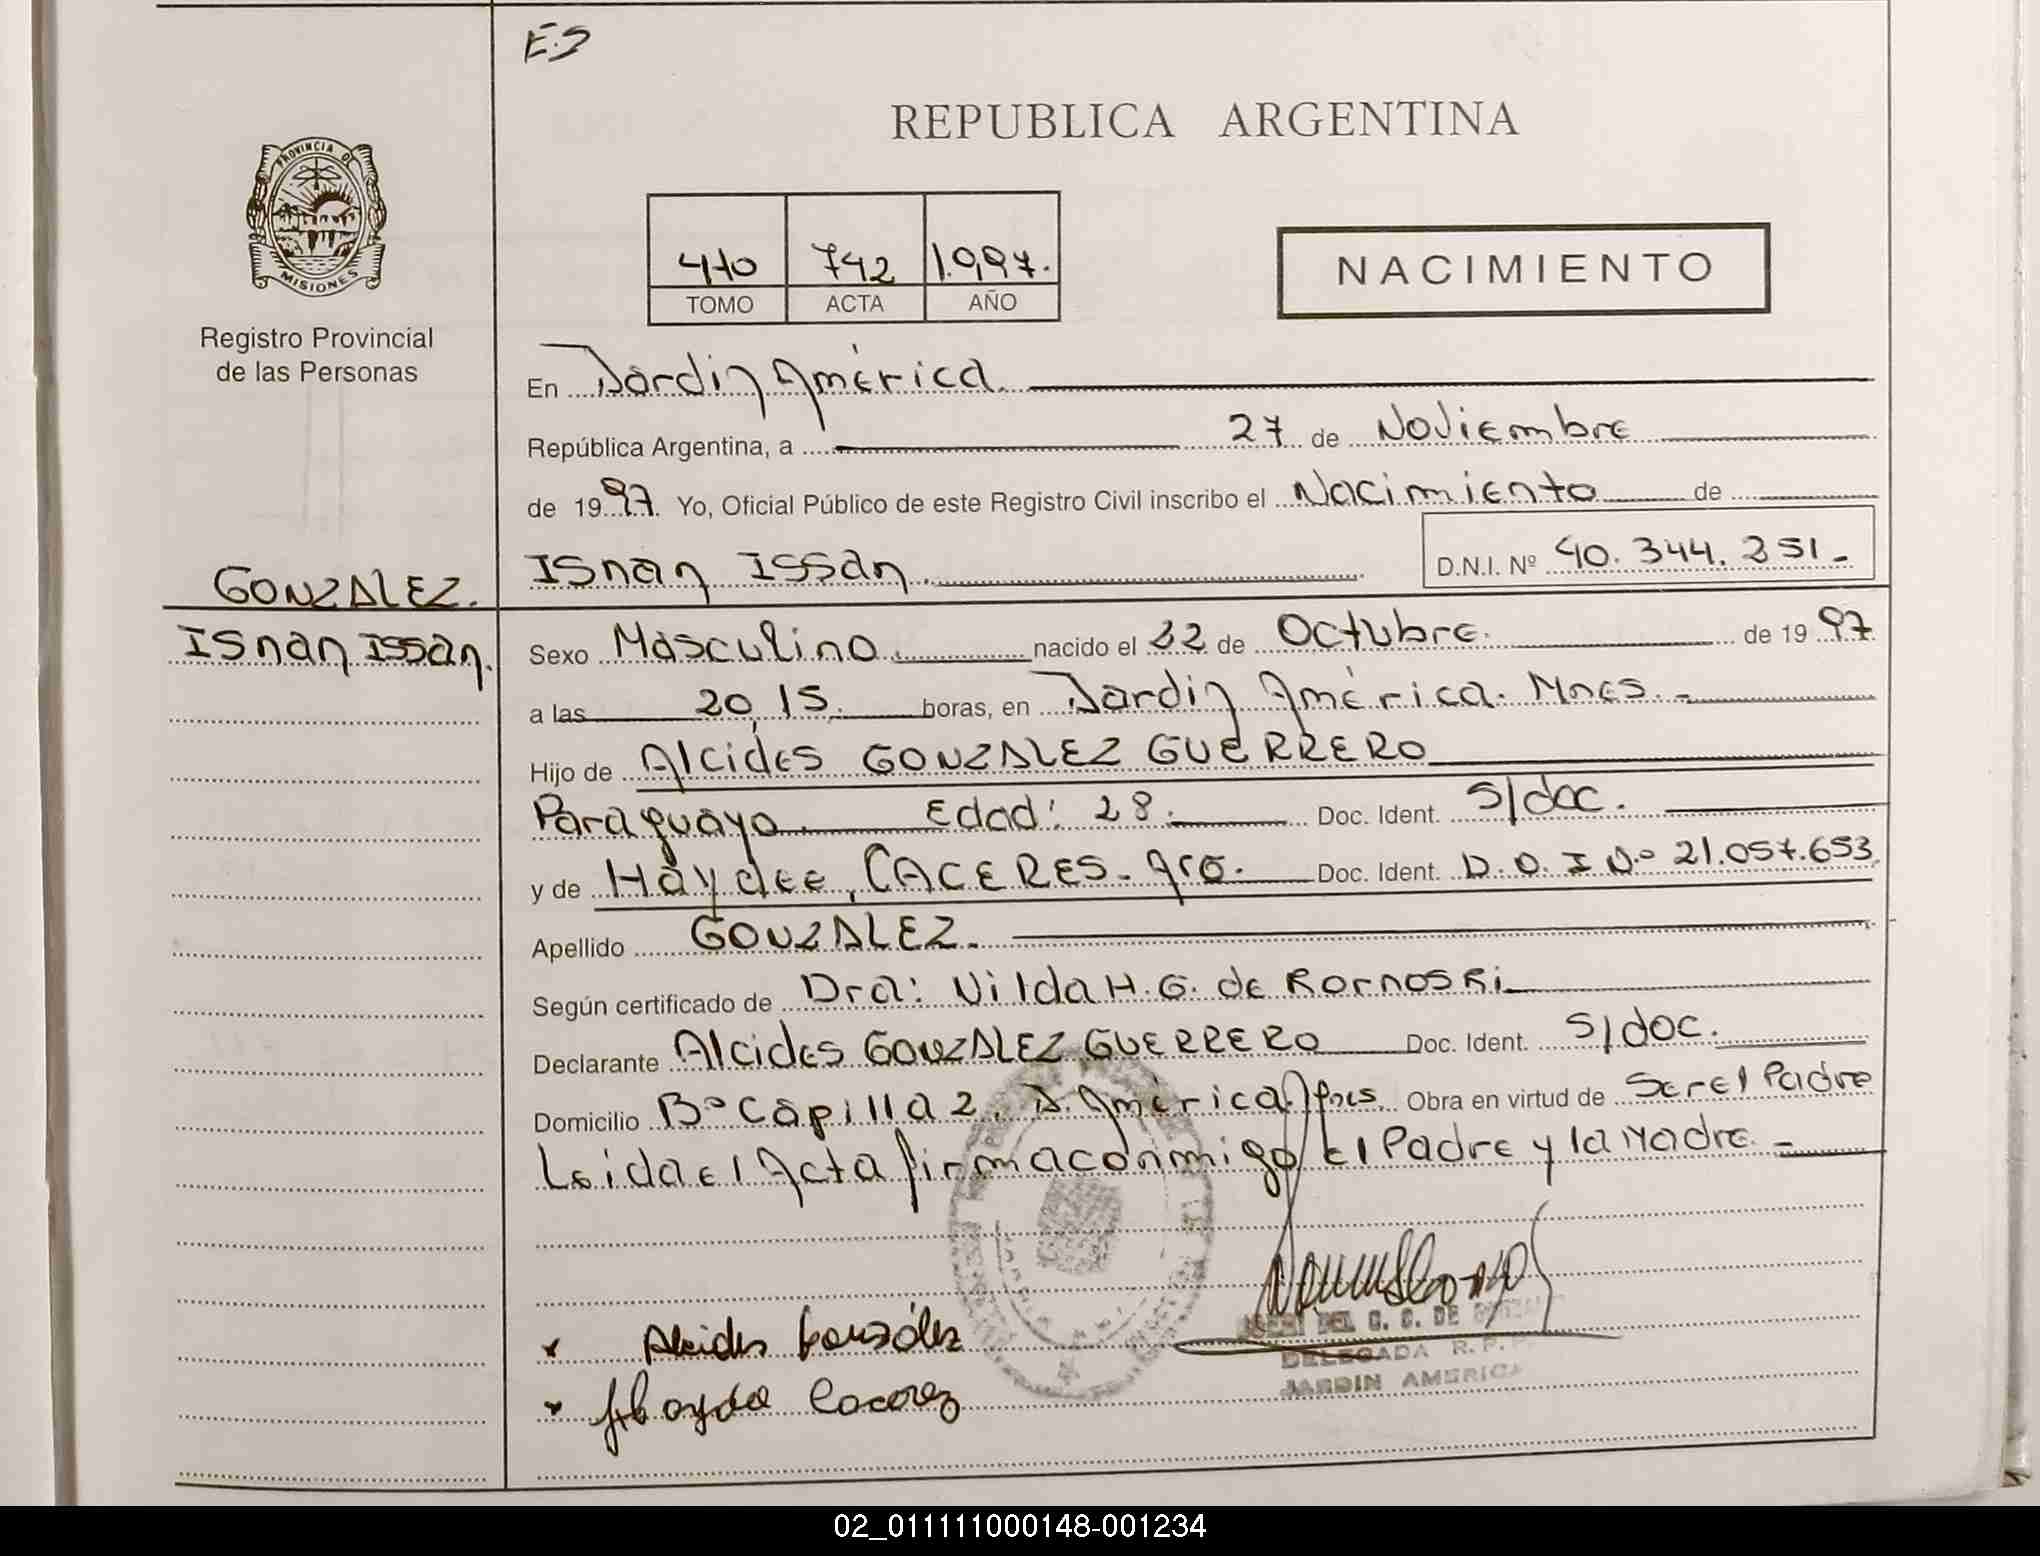 ES
PROVINCIA DE
MISIONES
Registro Provincial
de las Personas
REPUBLICA ARGENTINA
410 742 1.997.
TOMO ACTA AÑO
NACIMIENTO
En Jardin América.
República Argentina, a 27 de Noviembre
de 1997. Yo, Oficial Público de este Registro Civil inscribo el Nacimiento de
Isnan Issan. D.N.I. Nº 40.344.251.-
GONZALEZ.
Isnan Issan.
Sexo Masculino. nacido el 22 de Octubre. de 19 97
a las 20,15. boras, en Jardin América. Mnes.-
Hijo de Alcides GONZALEZ GUERRERO
Paraguayo. Edad: 28. Doc. Ident. S/doc.
y de Haydee, CACERES- Arg. Doc. Ident. D.N.I Nº 21.057.653
Apellido GONZALEZ.
Según certificado de Dra: Nilda H. G. de
Declarante Alcides GONZALEZ GUERRERO Doc. Ident. S/doc.
Domicilio Bº Capilla 2, J. América. Mnes. Obra en virtud de Ser el Padre
Leida el Acta firma conmigo El Padre y la Madre.-
Alcides González
Haydee Caceres
DEL G. C. DE
DELEGADA R. P.
JARDIN AMERICA
02_011111000148-001234